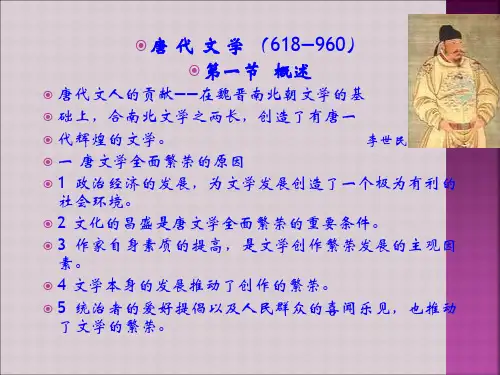 唐 代 文 学 （618—960）
第一节 概述
唐代文人的贡献——在魏晋南北朝文学的基
础上，合南北文学之两长，创造了有唐一
代辉煌的文学。
李世民
一 唐文学全面繁荣的原因
1 政治经济的发展，为文学发展创造了一个极为有利的
社会环境。
2 文化的昌盛是唐文学全面繁荣的重要条件。
3 作家自身素质的提高，是文学创作繁荣发展的主观因
素。
4 文学本身的发展推动了创作的繁荣。
5 统治者的爱好提倡以及人民群众的喜闻乐见，也推动
了文学的繁荣。